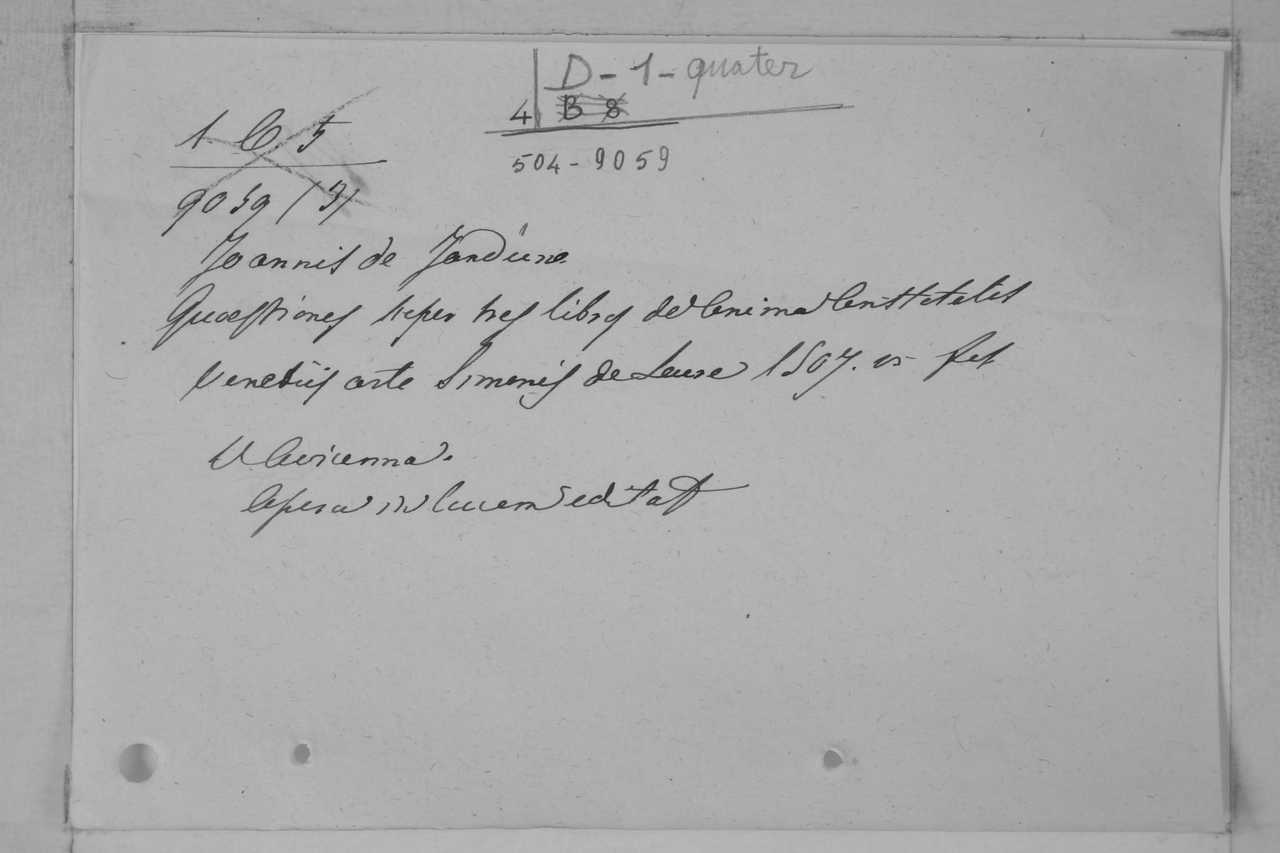 D - 1 - quater
4 B 8
504 - 9059
1. C. 5
9059 (3)
Joannis de Janduno
Quaestiones super tres libros de Anima Aristotelis
Venetiis arte Simonis de Luere 1507. in fol
V Avicenna.
Opera in lucem edita